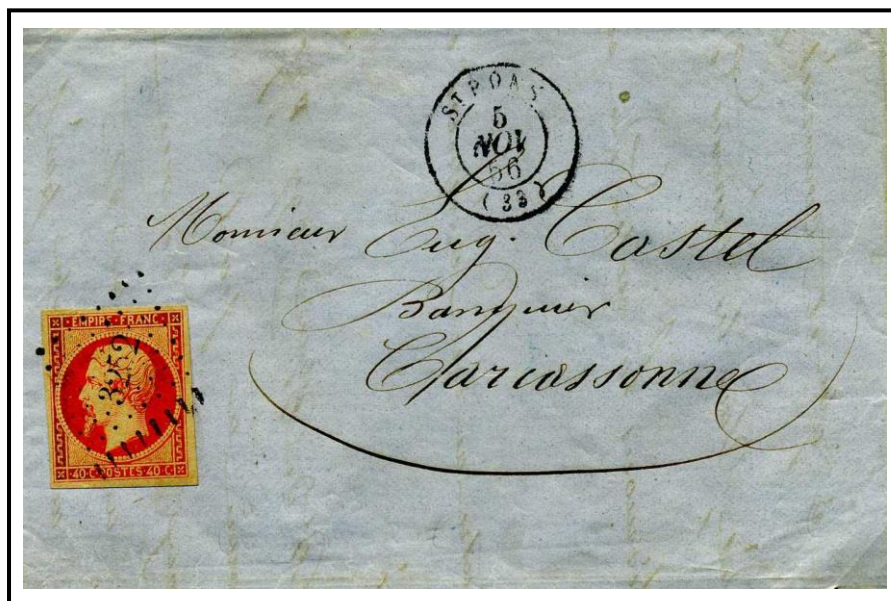 ST PONS
5
NOV
56
(33)
Monsieur Eug. Castel
Banquier
Carcassonne
EMPIRE FRANC
40 C POSTES 40 C